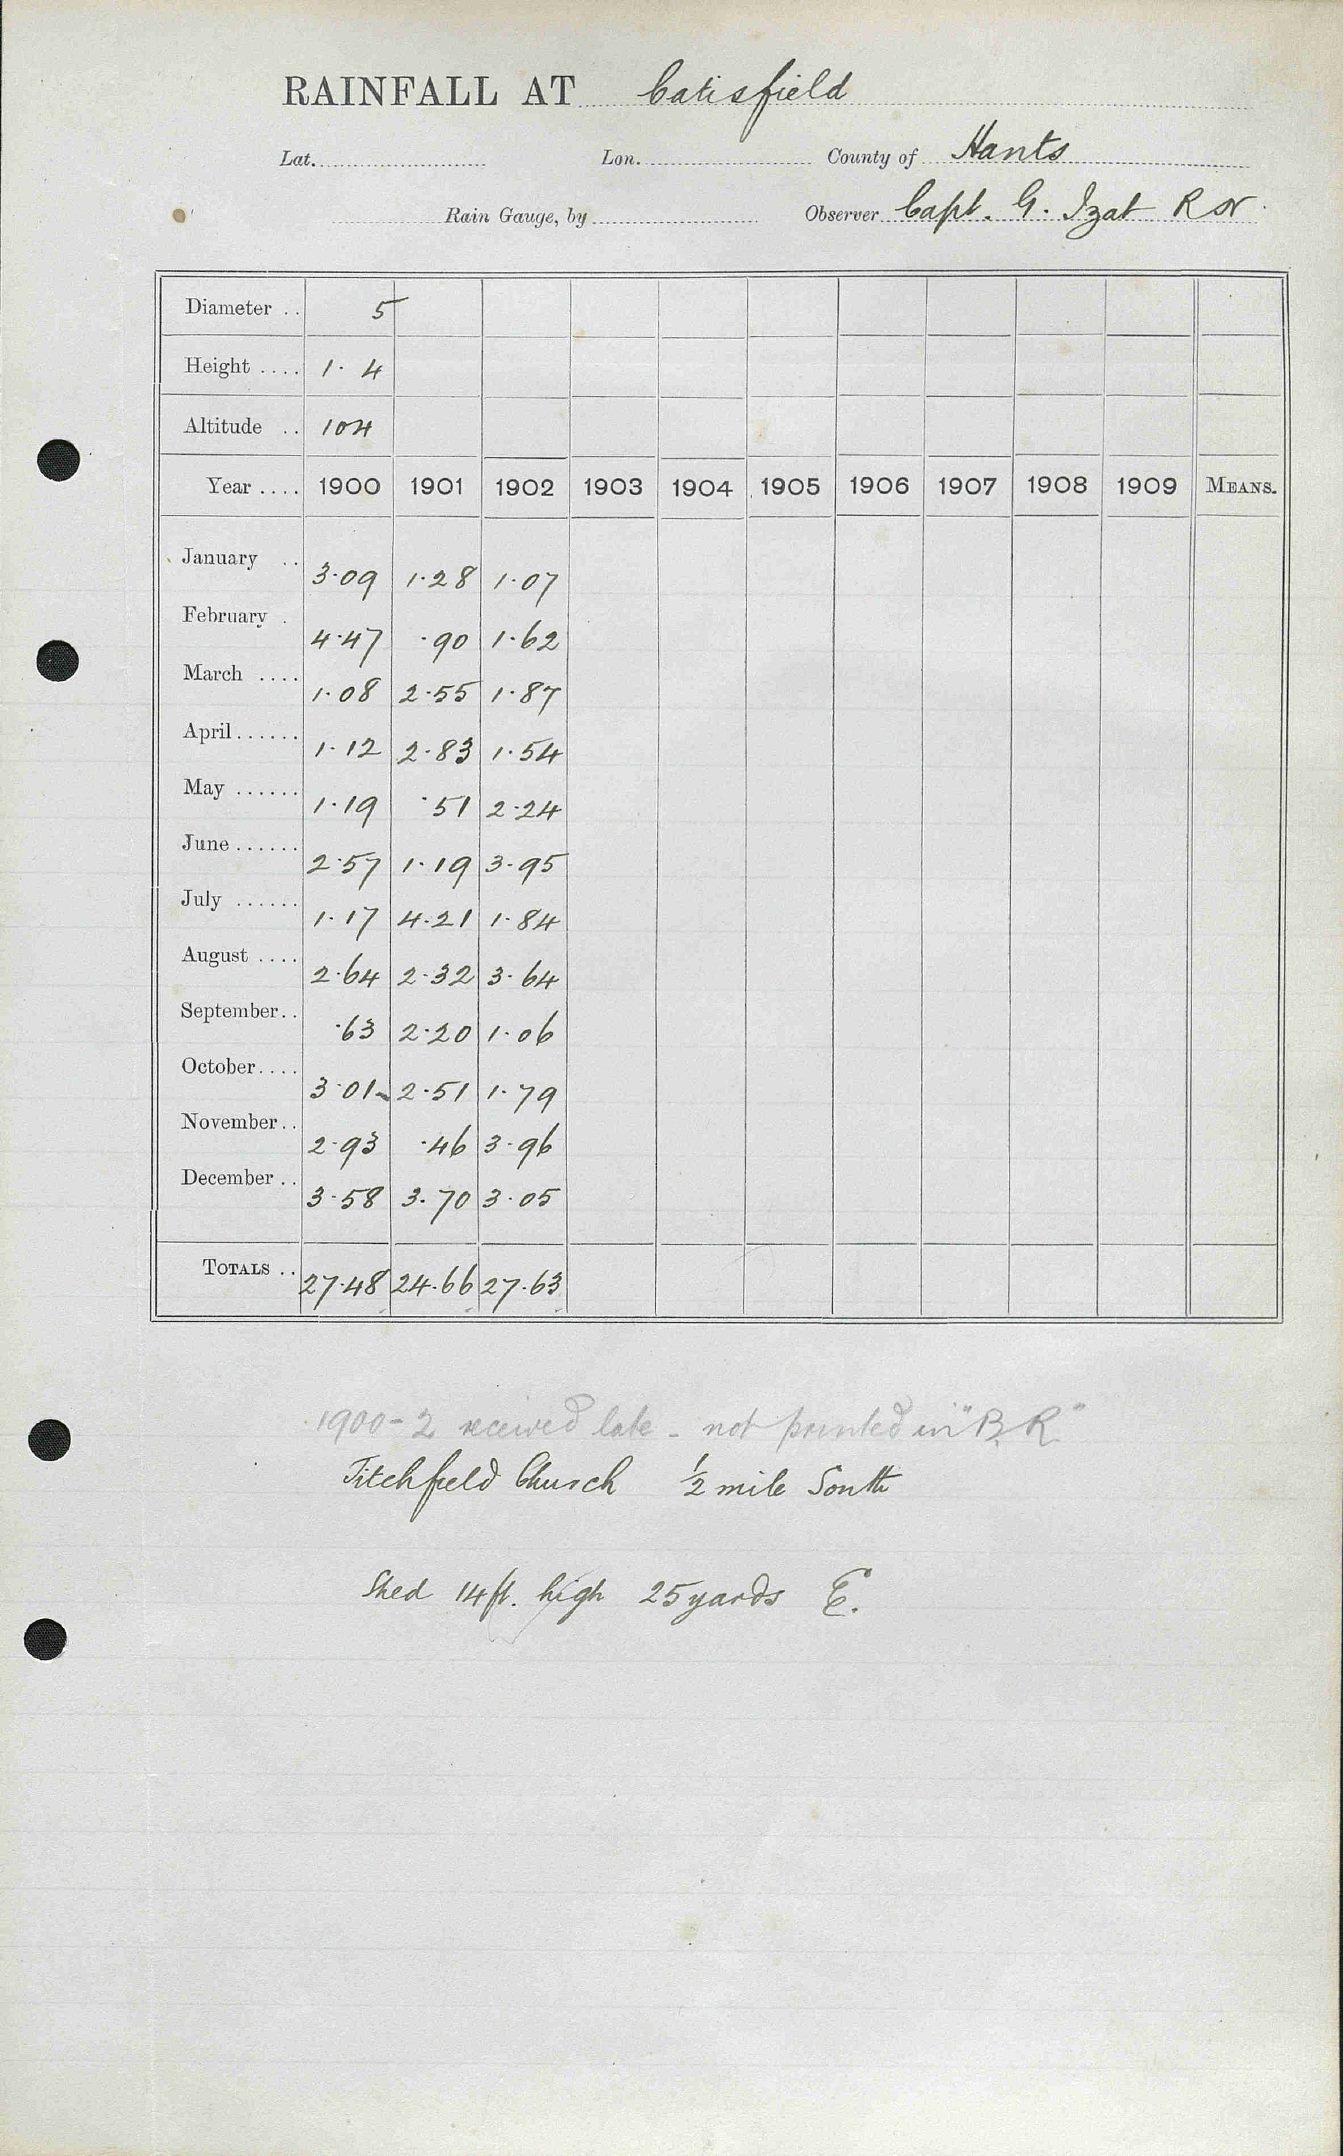 RAINFALL AT Catisfield
Lat. Lon. County of Hants
Rain Gauge, by Observer Capt. G. Izat R N
Diameter .. 5
Height .... 1. 4
Altitude .. 104
Year .... 1900 1901 1902 1903 1904 1905 1906 1907 1908 1909 MEANS.
January .. 3.09 1.28 1.07
February . 4.47 .90 1.62
March .... 1.08 2.55 1.87
April...... 1.12 2.83 1.54
May ...... 1.19 .51 2.24
June...... 2.57 1.19 3.95
July ...... 1.17 4.21 1.84
August .... 2.64 2.32 3.64
September.. .63 2.20 1.06
October.... 3.01 2.51 1.79
November.. 2.93 .46 3.96
December .. 3.58 3.70 3.05
TOTALS .. 27.48 24.66 27.63
1900-2 received late - not printed in "B.R."
Titchfield Church ½ mile South
Shed 14 ft. high 25 yards E.